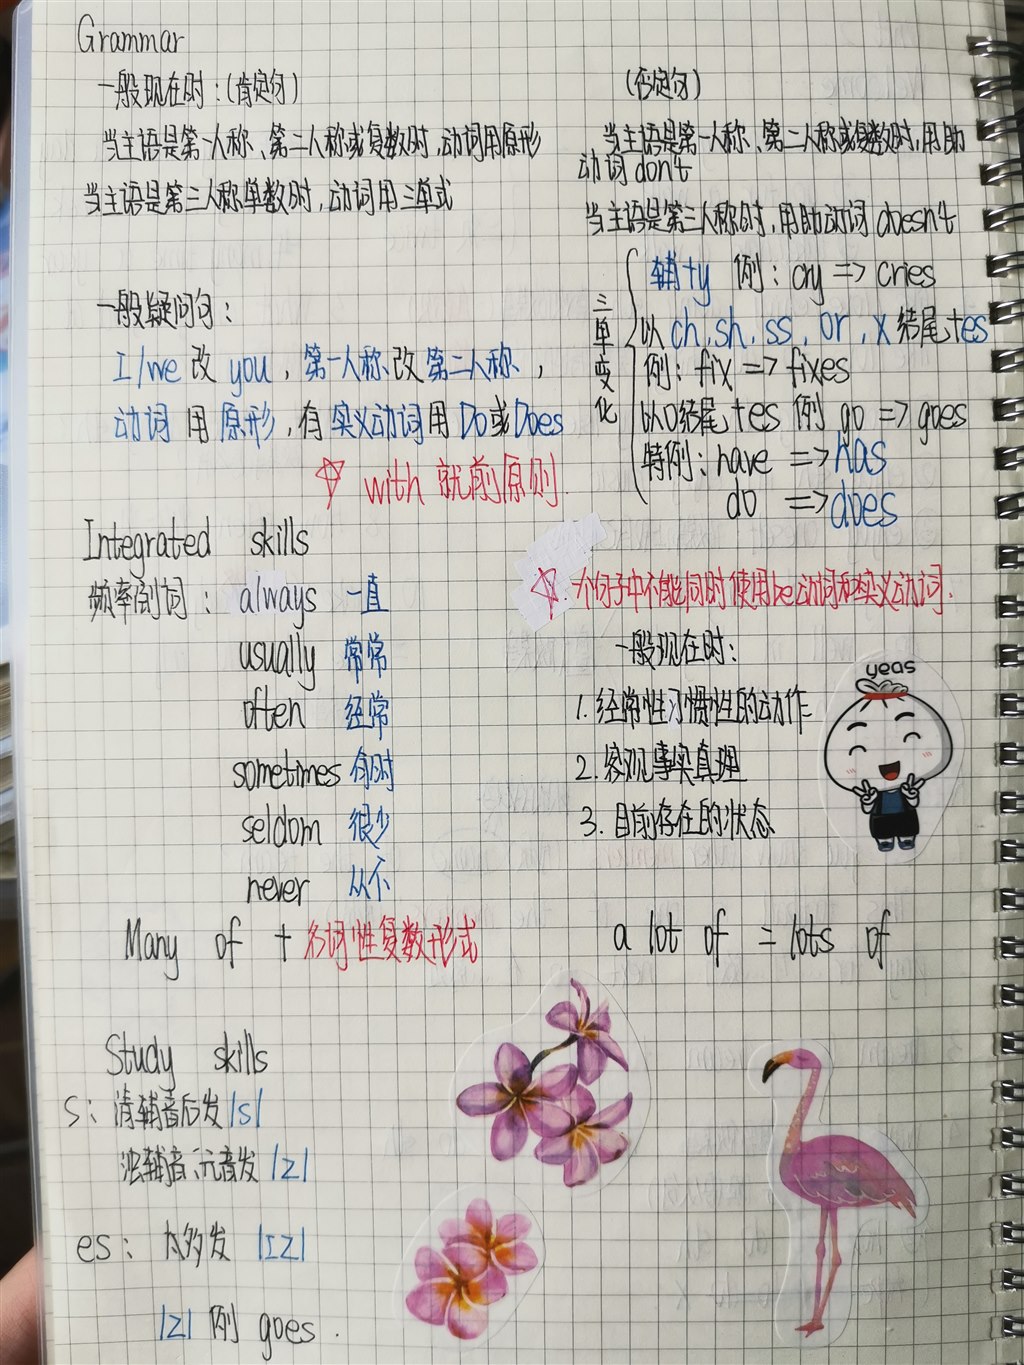 Grammar
一般现在时：(肯定句)
当主语是第一人称、第二人称或复数时，动词用原形
当主语是第三人称单数时，动词用三单式
(否定句)
当主语是第一人称、第二人称或复数时，用助
动词 don't
当主语是第三人称时，用助动词 doesn't
一般疑问句：
I/we 改 you，第一人称改第二人称，
动词用原形，有实义动词用 Do或Does
☆ with 就前原则.
三单变化
辅+y 例：cry => cries
以 ch, sh, ss, or, x 结尾+es
例：fix => fixes
以o结尾+es 例 go => goes
特例：have => has
do => does
Integrated skills
频率副词：always 一直
usually 常常
often 经常
sometimes 有时
seldom 很少
never 从不
☆ 一个句子中不能同时使用be动词和实义动词.
一般现在时：
1. 经常性习惯性的动作
2. 客观事实真理
3. 目前存在的状态
yeas
Many of + 名词性复数形式
a lot of = lots of
Study skills
s：清辅音后发 |s|
浊辅音、元音发 |z|
es：大多发 |ɪz|
|z| 例 goes.